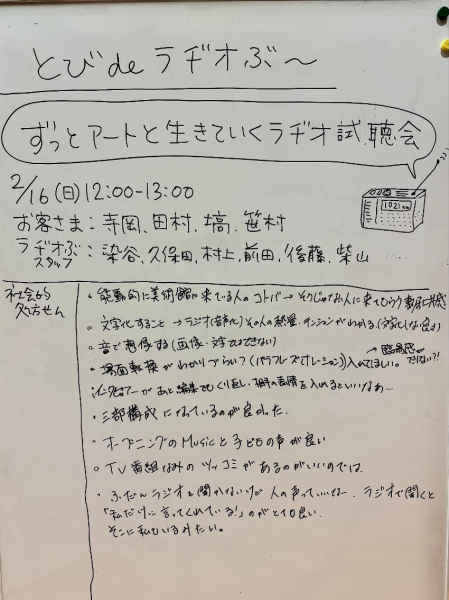 とびdeラヂオぶ〜
ずっとアートと生きていくラヂオ試聴会
2/16(日)12:00-13:00
お客さま:寺岡、田村、塙、笹村
ラヂオぶスタッフ:染谷、久保田、村上、前田、後藤、柴山
社会から処方せん
・能動的に美術館に来ている人のコトバ→そうじゃない人に来てもらう
・文字化すること→ラジオ(音声化)その人の熱量・テンションがわかる(文字化しない良さ)
・音で想像する(画像・文字ではできない)
・場面転換がわかりづらい?(パラフレーズ(ナレーション))入れてほしい。→臨場感でない?!
があと編集でもくり返し・相手の言情を入れるといいなあ…
・三部構成になっているのが良かった。
・オープニングのMusicと子どもの声が良い
・TV番組なみのツッコミがあるのがいいのでは
・ふだんラジオを聞かないけど人の声っていいなー。ラジオで聞くと
「私だけに言ってくれている!」のがとても良い。
そこに私もいるみたい。